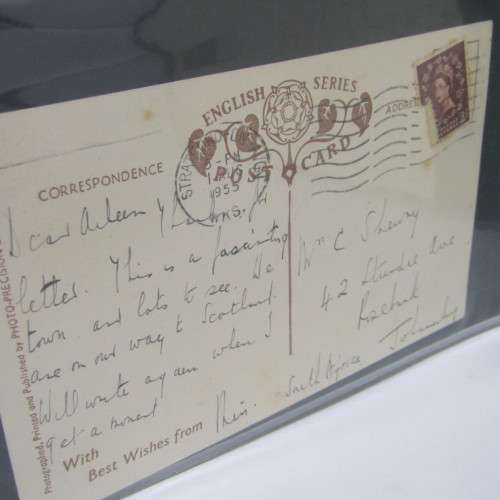 ENGLISH SERIES
POST CARD
CORRESPONDENCE
ADDRESS
PM
1955
Dear Aileen Thanks for
letter. This is a fascinating
town and lots to see. We
are on our way to Scotland.
Will write again when I
get a moment
With
Best Wishes from
Mr C Shewry
42 Sturdee Ave
Rosebank
Johannesburg
South Africa
Photographed, Printed and Published by PHOTO-PRECISION